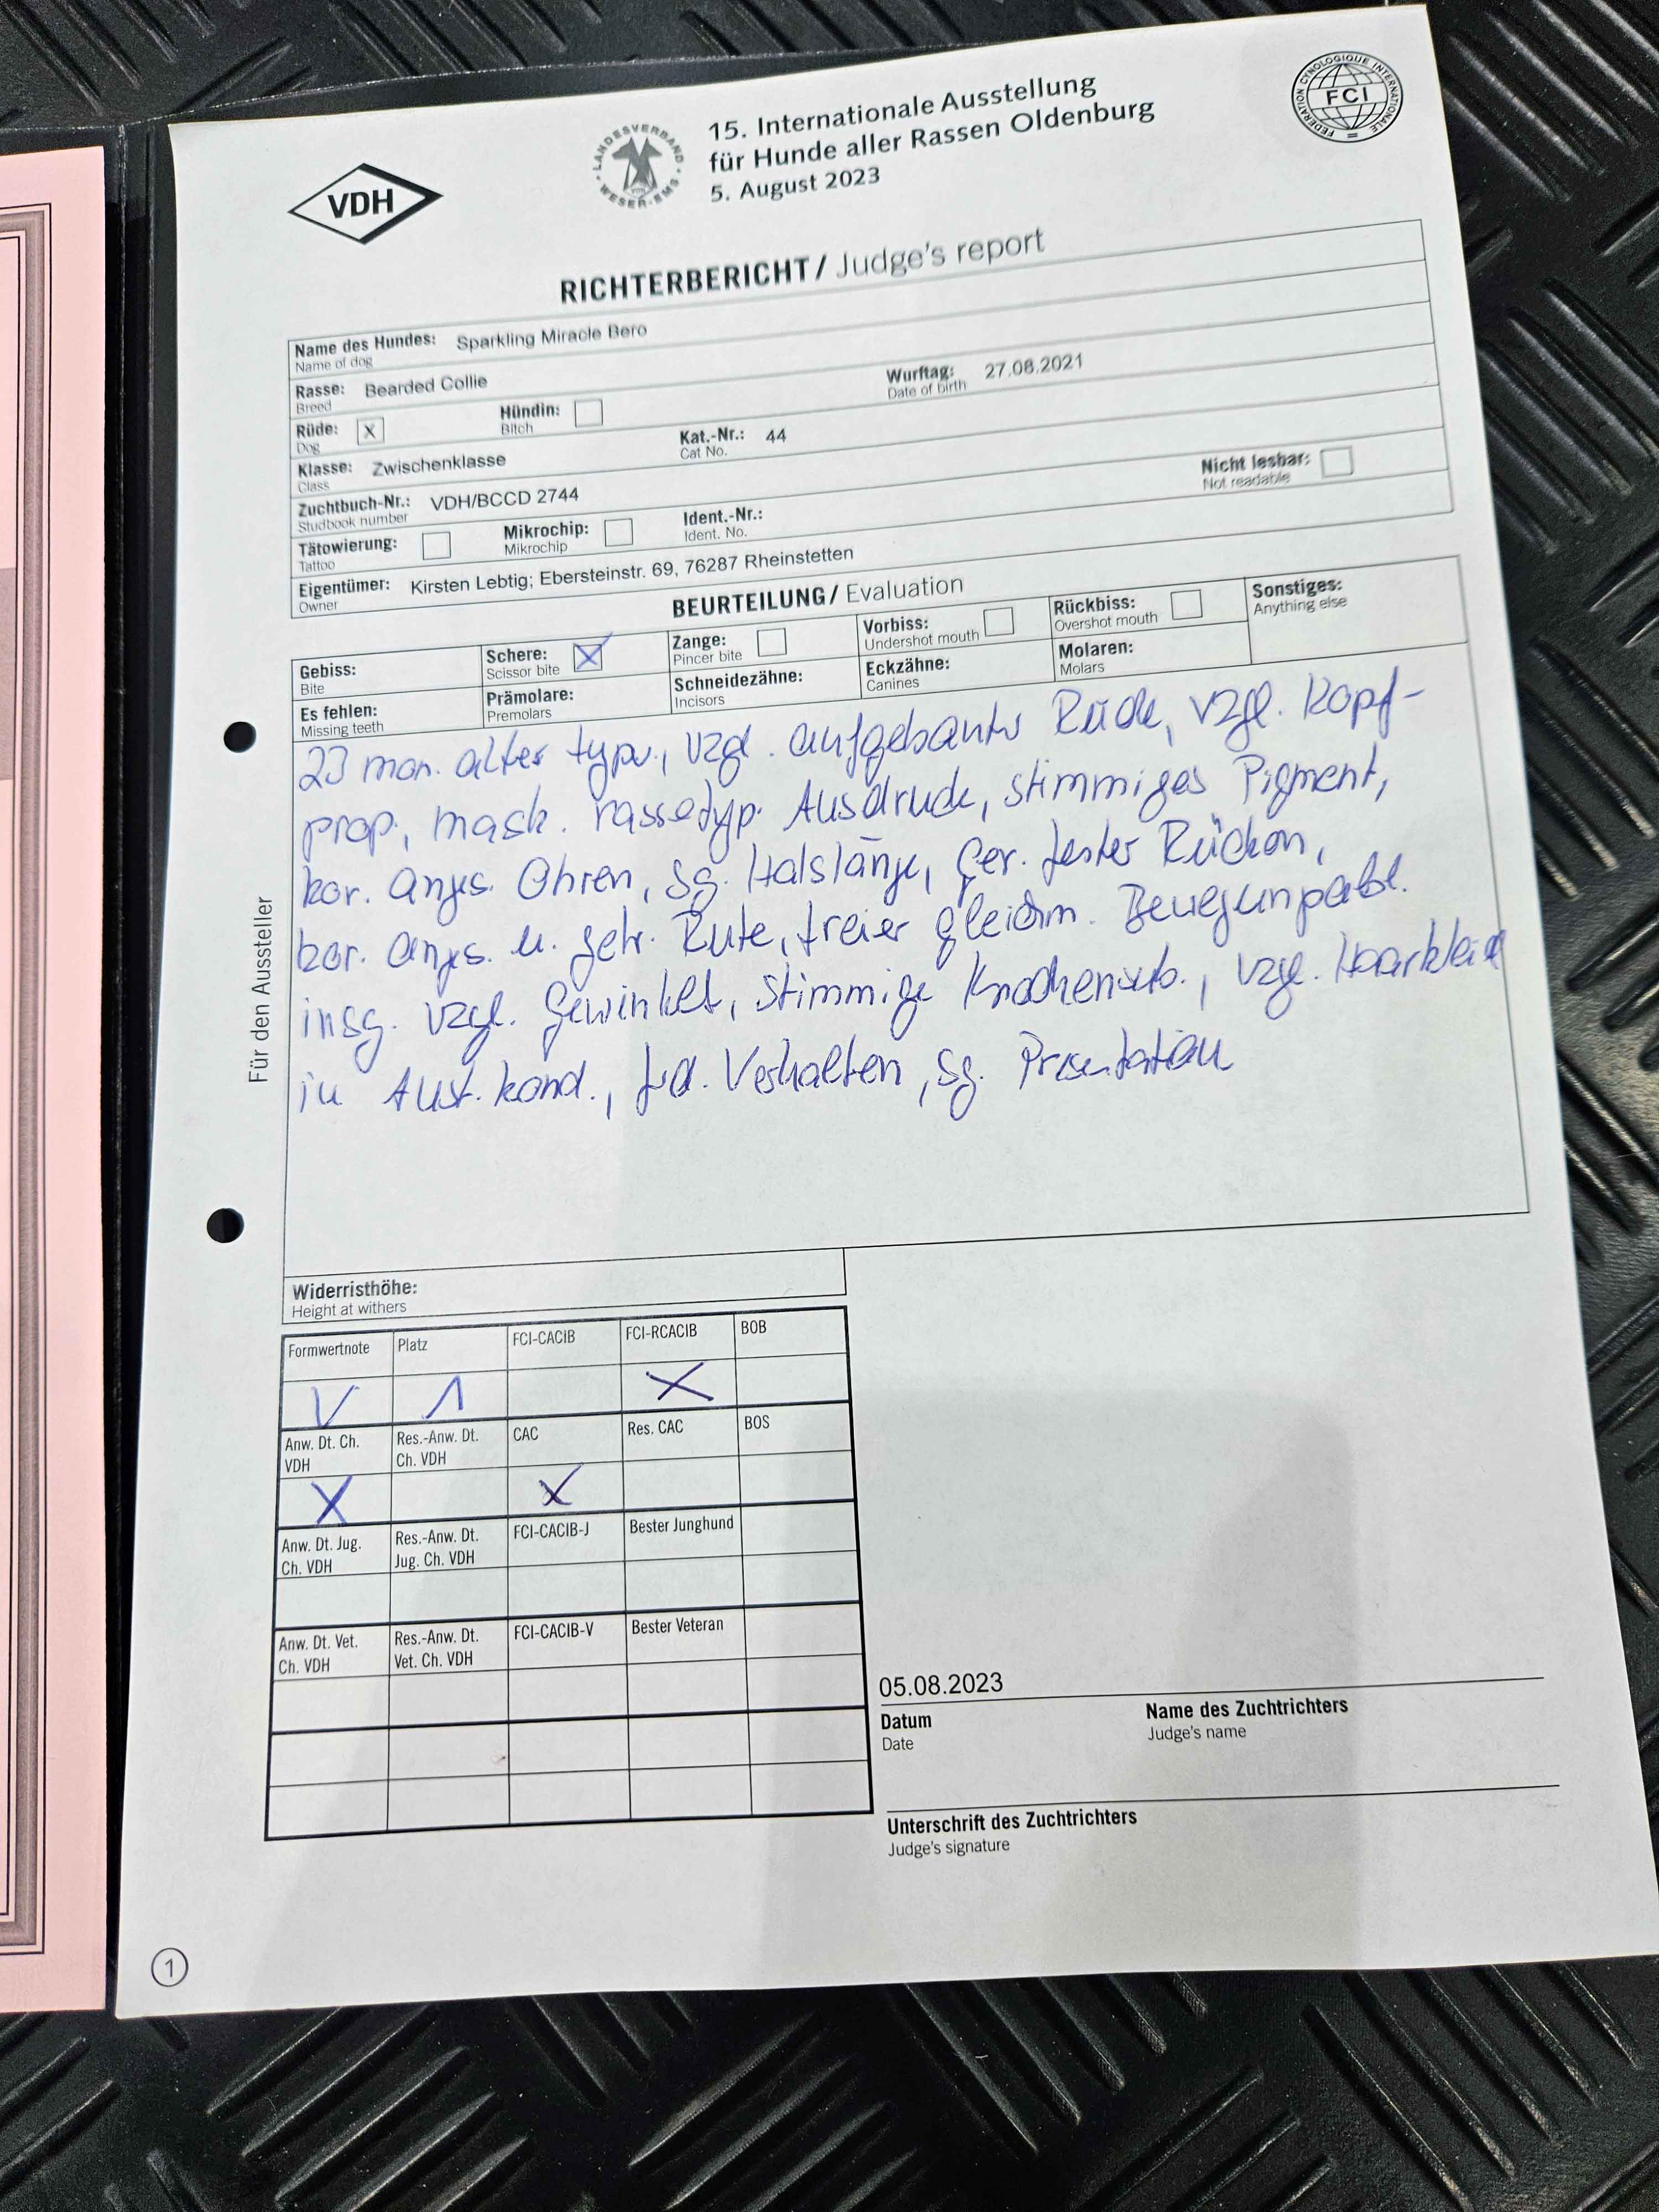 15. Internationale Ausstellung
für Hunde aller Rassen Oldenburg
5. August 2023
LANDESVERBAND WESER-EMS
FEDERATION CYNOLOGIQUE INTERNATIONALE
FCI
VDH
RICHTERBERICHT / Judge's report
Name des Hundes: Sparkling Miracle Bero
Name of dog
Rasse: Bearded Collie Wurftag: 27.08.2021
Breed Date of birth
Rüde: X Hündin:
Dog Bitch
Klasse: Zwischenklasse Kat.-Nr.: 44
Class Cat No.
Zuchtbuch-Nr.: VDH/BCCD 2744 Nicht lesbar:
Studbook number Not readable
Tätowierung: Mikrochip: Ident.-Nr.:
Tattoo Mikrochip Ident. No.
Eigentümer: Kirsten Lebtig; Ebersteinstr. 69, 76287 Rheinstetten
Owner
BEURTEILUNG / Evaluation
Gebiss: Schere: X Zange: Vorbiss: Rückbiss: Sonstiges:
Bite Scissor bite Pincer bite Undershot mouth Overshot mouth Anything else
Es fehlen: Prämolare: Schneidezähne: Eckzähne: Molaren:
Missing teeth Premolars Incisors Canines Molars
23 mon. alter typv., vzgl. aufgebauter Rüde, vzgl. Kopf-
prop., mask. rassetyp. Ausdruck, stimmiges Pigment,
kor. anges. Ohren, sg. Halslänge, ger. fester Rücken,
kor. anges. u. getr. Rute, freier gleichm. Bewegungsabl.
insg. vzgl. gewinkelt, stimmige Knochenstb., vzgl. Haarkleid
in Ausst. kond., frdl. Verhalten, sg. Präsentation
Für den Aussteller
Widerristhöhe:
Height at withers
Formwertnote Platz FCI-CACIB FCI-RCACIB BOB
V 1 X
Anw. Dt. Ch. VDH Res.-Anw. Dt. Ch. VDH CAC Res. CAC BOS
X X
Anw. Dt. Jug. Ch. VDH Res.-Anw. Dt. Jug. Ch. VDH FCI-CACIB-J Bester Junghund
Anw. Dt. Vet. Ch. VDH Res.-Anw. Dt. Vet. Ch. VDH FCI-CACIB-V Bester Veteran
05.08.2023
Datum Name des Zuchtrichters
Date Judge's name
Unterschrift des Zuchtrichters
Judge's signature
1